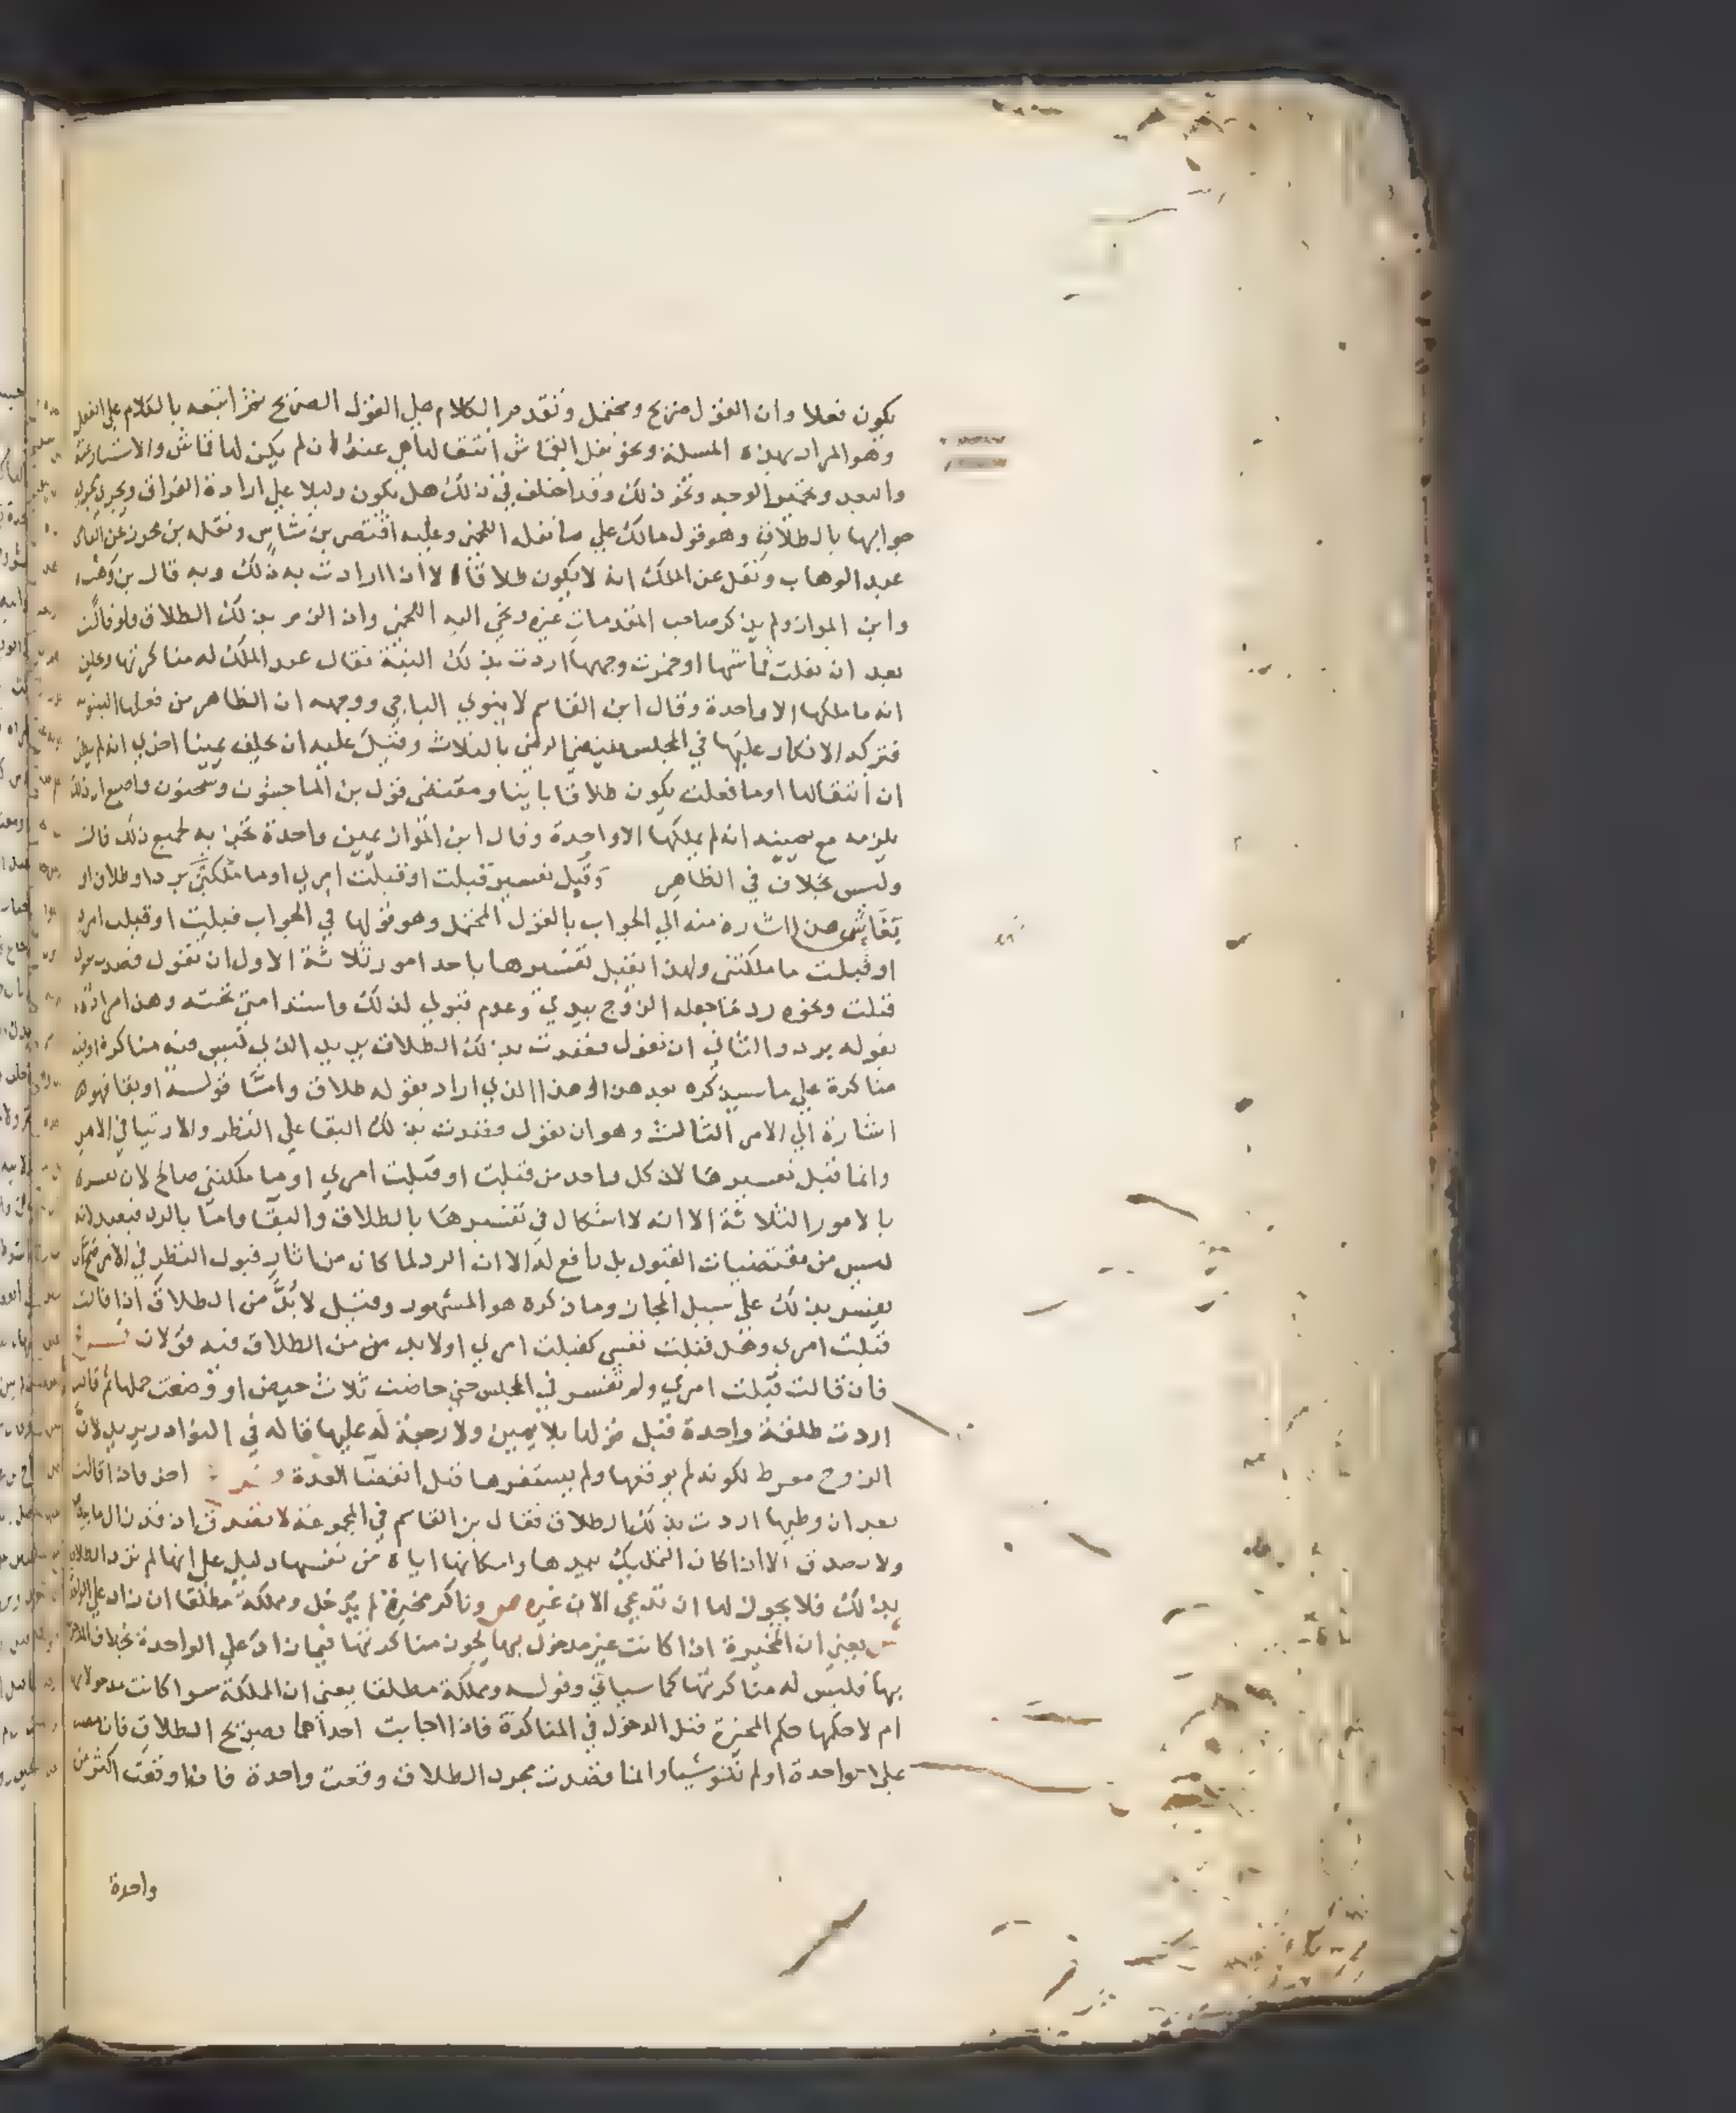 يكون فعلا وان القول صريح ومحتمل وتقدم الكلام علي القول الصريح ثم اتبعه بالكلام علي الفعل
وهو المراد بهذه المسلة ونحو نقل القماش انتقالها عنه ان لم يكن لها قماش والاستتار منه
والبعد وتخمير الوجه ونحو ذلك وقد اختلف في ذلك هل يكون دليلا علي ارادة الفراق ويجري مجري
جوابها بالطلاق وهو قول مالك علي ما نقله اللخمي وعليه اقتصر بن شاس ونقله بن محرز عن القاضي
عبد الوهاب ونقل عن الملك انه لا يكون طلاقا الا ان ارادت به ذلك وبه قال بن وهب
وابن المواز ولم يذكر صاحب المقدمات غيره ونحي اليه اللخمي وان الزم بذلك الطلاق فلو قالت
بعد ان نقلت قماشها او خمرت وجهها اردت بذلك البتة فقال عبد الملك له مناكرتها وحلف
انه ما ملكها الا واحدة وقال ابن القاسم لا ينوي الباجي ووجهه ان الظاهر من فعلها البينونة
فتركه الانكار عليها في المجلس يقتضي الرضي بالثلاث وقيل عليه ان يحلف يمينا اخري انه لم يظن
ان انتقالها او ما فعلت يكون طلاقا باينا ومقتضي قول بن الماجشون وسحنون واصبغ ان ذلك
يلزمه مع يمينه انه لم يملكها الا واحدة وقال ابن المواز يمين واحدة تجزيه لجميع ذلك قالت
وليس بخلاف في الظاهر وقيل تفسير قبلت او قبلت امري او ما ملكتني برد او طلاق او
بقا ش هذا اشارة منه الي الجواب بالقول المحتمل وهو قولها في الجواب قبلت او قبلت امري
او قبلت ما ملكتني ولهذا يقبل تفسيرها باحد امور ثلاثة الاول ان تقول قصدت بقولي
قبلت ونحوه رد ما جعله الزوج بيدي وعدم قبولي لذلك واستدامتي تحته وهذا مراده
بقوله برد والثاني ان تقول قصدت بذلك الطلاق يريد الذي ليس فيه مناكرة او فيه
مناكرة علي ما سيذكره بعد هذا وهذا الذي اراد بقوله طلاق وامّا قوله او بقا فهو
اشارة الي الامر الثالث وهو ان تقول قصدت بذلك البقا علي النظر والارتيا في الامر
وانما قبل تفسيرها لان كل واحد من قبلت او قبلت امري او ما ملكتني صالح لان تفسره
بالامور الثلاثة الا انه لا اشكال في تفسيرها بالطلاق والبقا وامّا بالرد فبعيد لانه
ليس من مقتضيات القبول بل رافع له الا ان الرد لما كان من اثار قبول النظر في الامر صح ان
يفسر بذلك علي سبيل المجاز وما ذكره هو المشهور وقيل لا بُدَّ من الطلاق اذا قالت
قبلت امري وهل قبلت نفسي كقبلت امري او لا بد من الطلاق فيه قولان
فان قالت قبلت امري ولم تفسر في المجلس حتي حاضت ثلاث حيض او وضعت حملها ثم قالت
اردت طلقة واحدة قبل قولها بلا يمين ولا رجعة له عليها قاله في النوادر يريد لان
الزوج مفرط لكونه لم يوقفها ولم يستفسرها قبل انقضا العدة اخر فاذا قالت
بعد ان وطيها اردت بذلك الطلاق فقال بن القاسم في المجموعة لا تصدق ان قد زال ما بيدها
ولا تصدق الا اذا كان التمليك بيدها وامكانها اياه من نفسها دليل علي انها لم ترد الطلاق
بذلك فلا يجوز لها ان تدعي الان غيره ص وناكر مخيرة لم يدخل ومملكة مطلقا ان زاد علي الواحدة
ش يعني ان المخيرة اذا كانت غير مدخول بها يجوز مناكرتها فيما زاد علي الواحدة بخلاف المدخول
بها فليس له مناكرتها كما سياتي وقوله ومملكة مطلقا يعني ان المملكة سوا كانت مدخولا بها
ام لا حكمها حكم المخيرة قبل الدخول في المناكرة فاذا اجابت احداهما بصريح الطلاق فان نصت
علي الواحدة او لم تنو شيا وانما قصدت مجرد الطلاق وقعت واحدة فان اوقعت اكثر من
واحدة